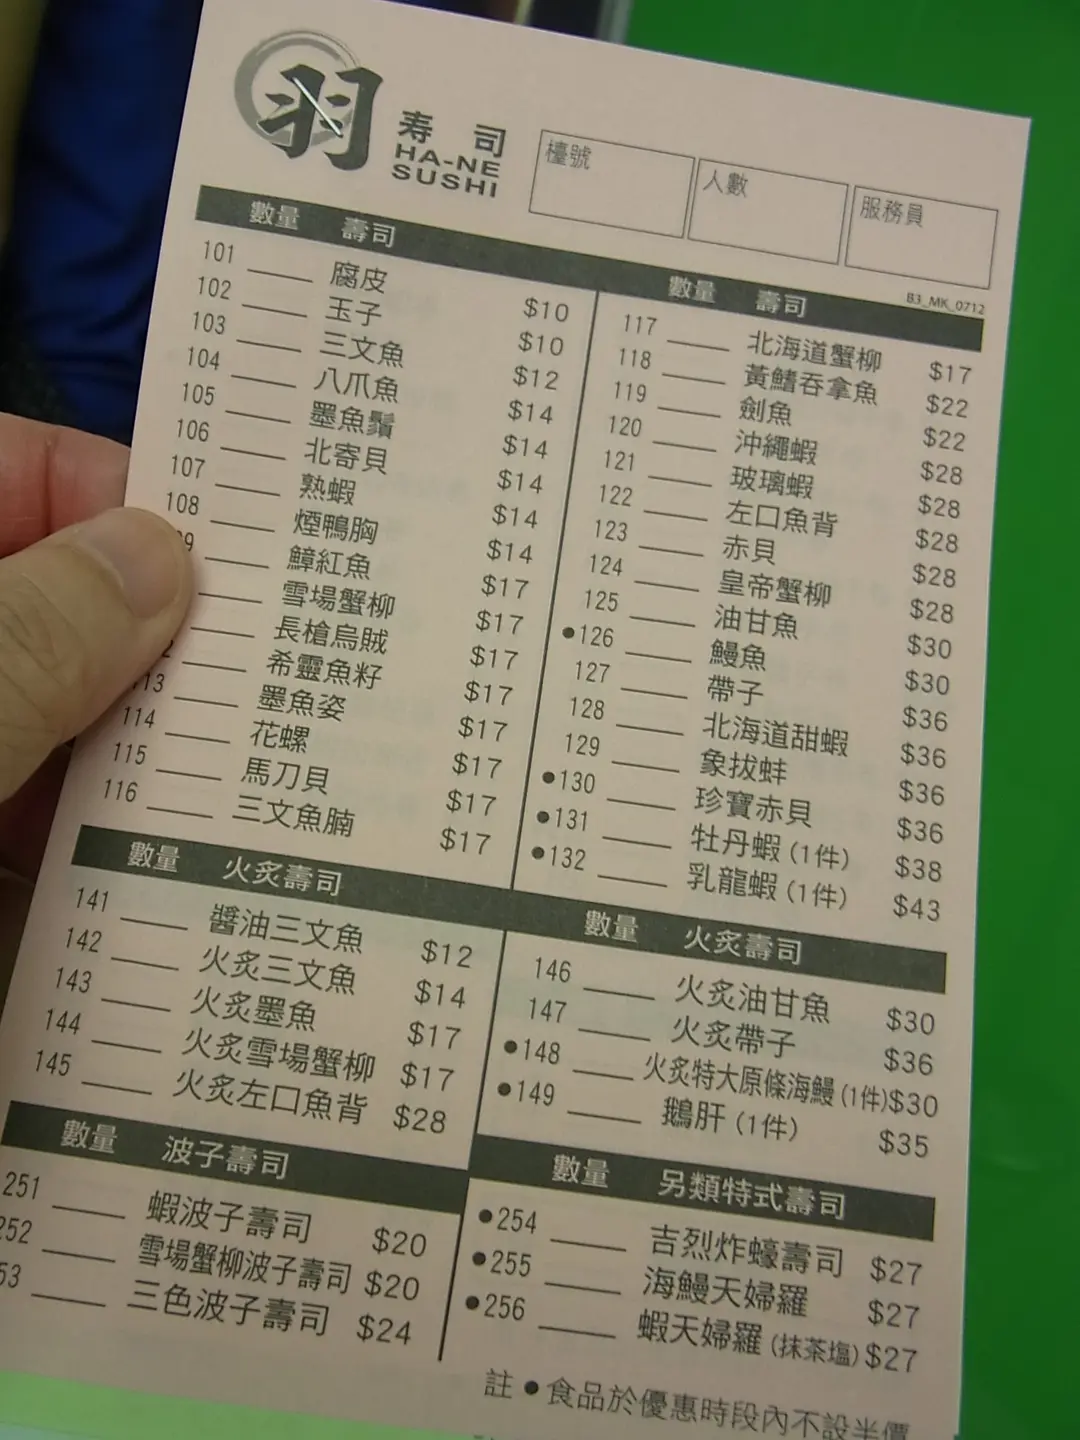 羽
寿司
HA-NE
SUSHI
檯號
人數
服務員
B3_MK_0712
數量 壽司
101 腐皮 $10
102 玉子 $10
103 三文魚 $12
104 八爪魚 $14
105 墨魚鬚 $14
106 北寄貝 $14
107 熟蝦 $14
108 煙鴨胸 $14
9 鱆紅魚 $17
雪場蟹柳 $17
長槍烏賊 $17
2 希靈魚籽 $17
113 墨魚姿 $17
114 花螺 $17
115 馬刀貝 $17
116 三文魚腩 $17
數量 壽司
117 北海道蟹柳 $17
118 黃鰭吞拿魚 $22
119 劍魚 $22
120 沖繩蝦 $28
121 玻璃蝦 $28
122 左口魚背 $28
123 赤貝 $28
124 皇帝蟹柳 $28
125 油甘魚 $30
●126 鰻魚 $30
127 帶子 $36
128 北海道甜蝦 $36
129 象拔蚌 $36
●130 珍寶赤貝 $36
●131 牡丹蝦 (1件) $38
●132 乳龍蝦 (1件) $43
數量 火炙壽司
141 醬油三文魚 $12
142 火炙三文魚 $14
143 火炙墨魚 $17
144 火炙雪場蟹柳 $17
145 火炙左口魚背 $28
數量 火炙壽司
146 火炙油甘魚 $30
147 火炙帶子 $36
●148 火炙特大原條海鰻 (1件) $30
●149 鵝肝 (1件) $35
數量 波子壽司
251 蝦波子壽司 $20
252 雪場蟹柳波子壽司 $20
53 三色波子壽司 $24
數量 另類特式壽司
●254 吉烈炸蠔壽司 $27
●255 海鰻天婦羅 $27
●256 蝦天婦羅 (抹茶塩) $27
註 ● 食品於優惠時段內不設半價